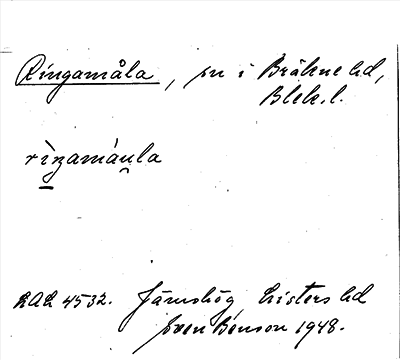 Ringamåla, sn i Bräkne hd,
Blek. l.
rìŋamáu̯la
LAL 4532. Jämshög Listers hd
Sven Benson 1948.